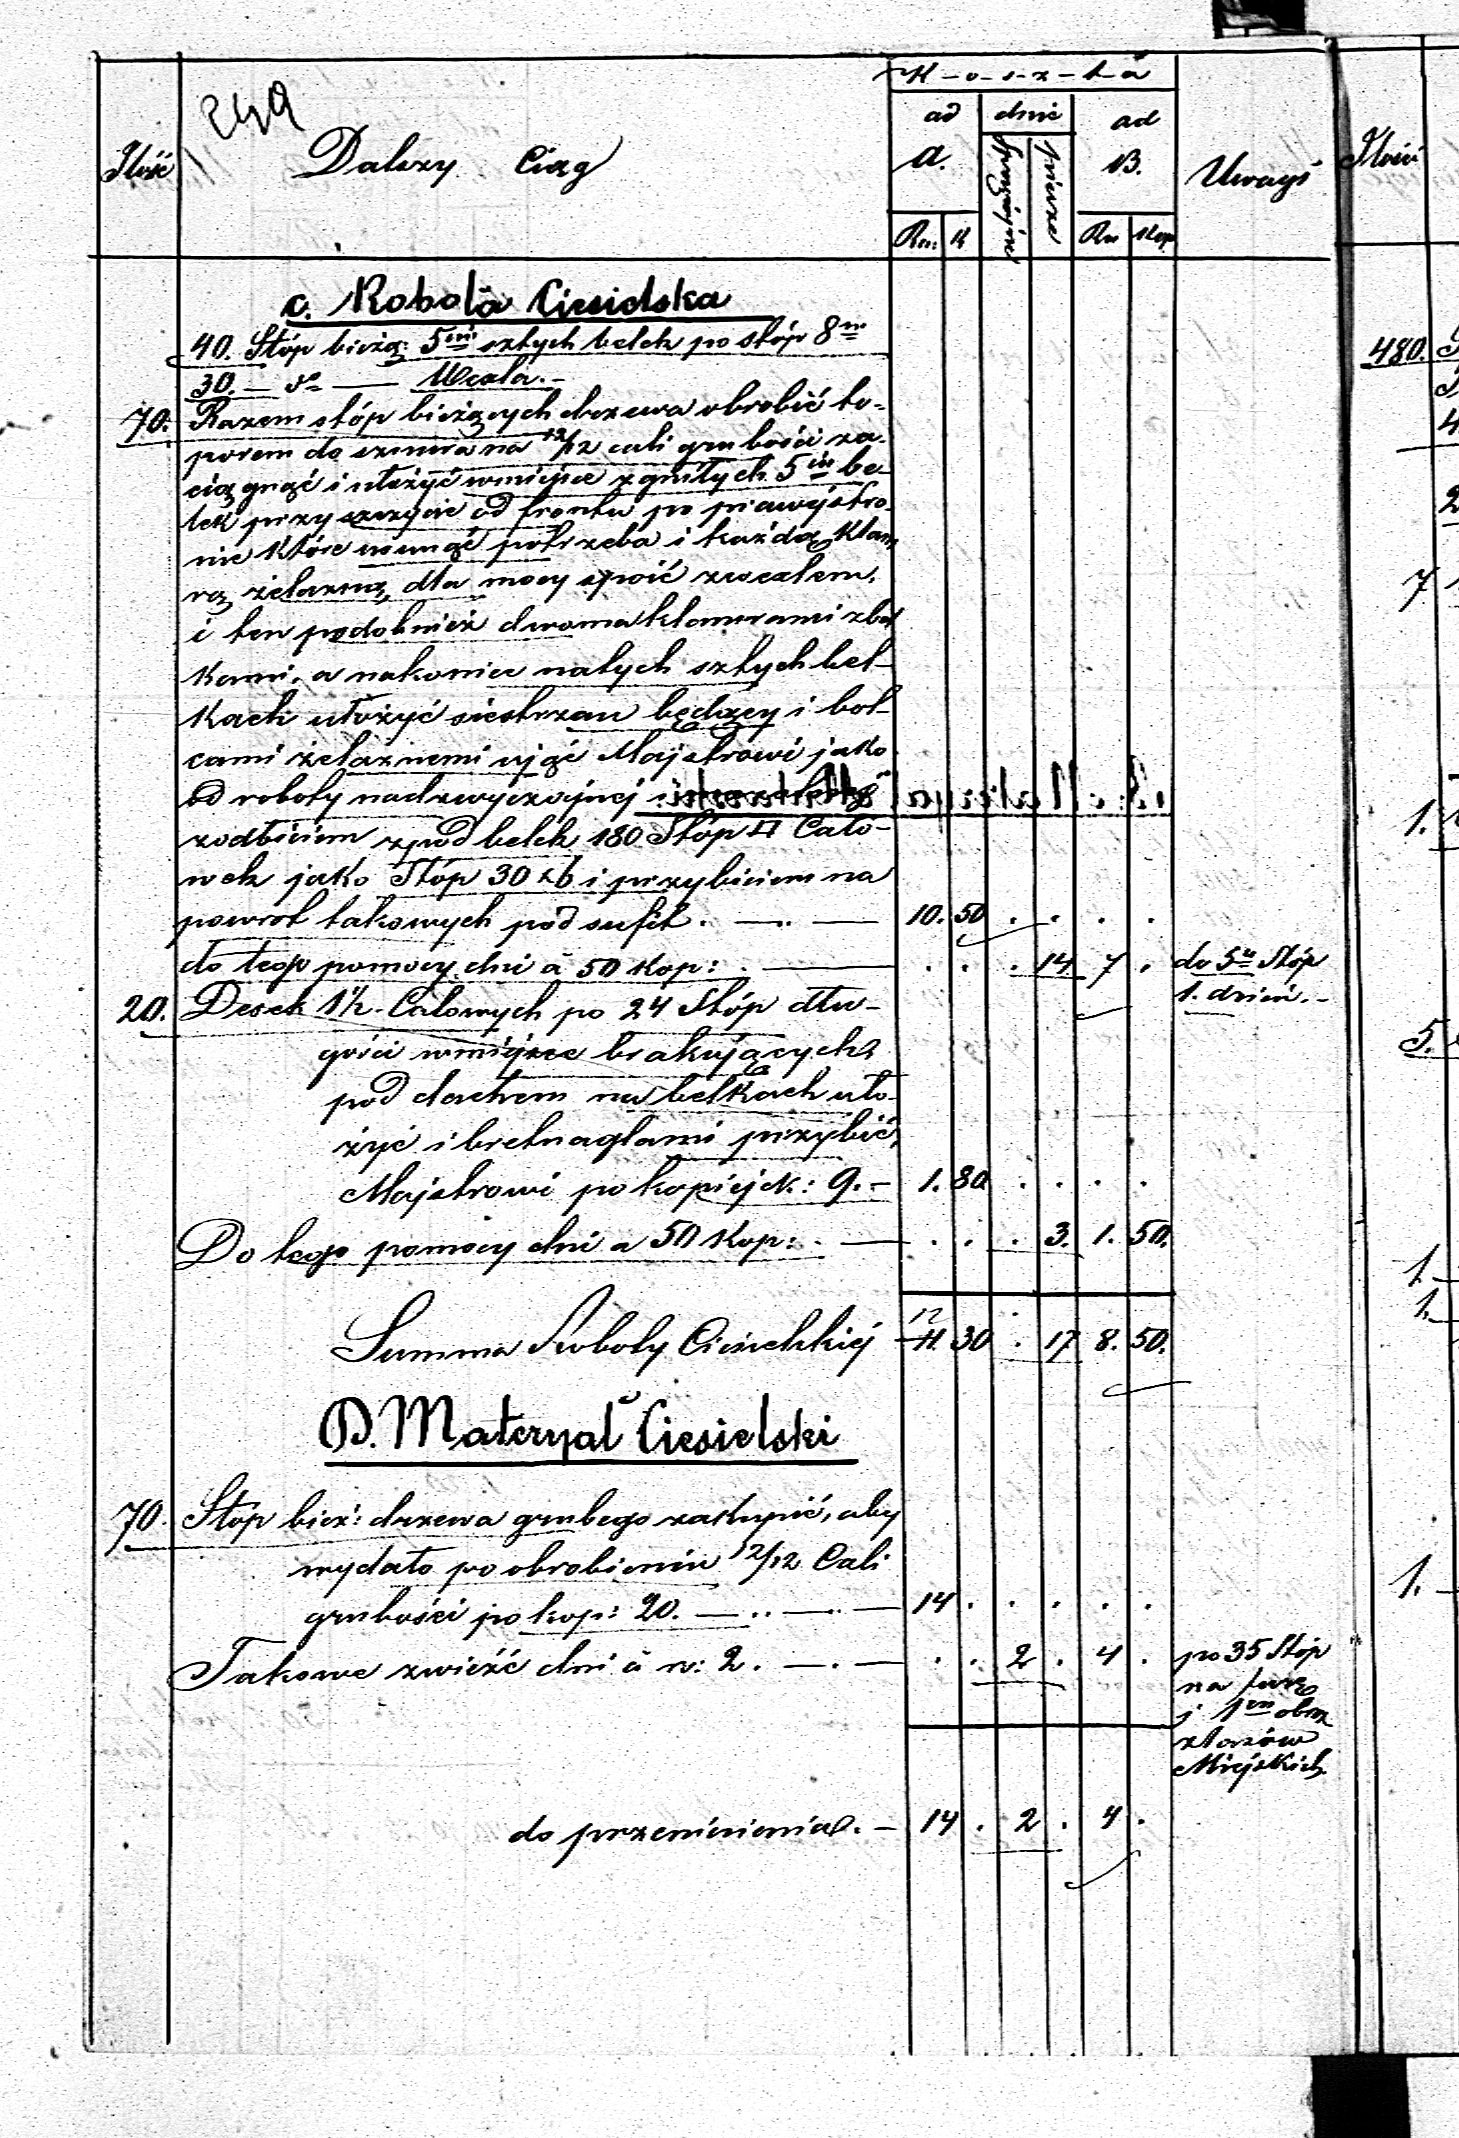 K-o-s-z-t-a
ad dnie ad
Ilość Dalszy Ciąg a. sprzężajne piesze B. Uwagi Ilość
Rs: K Rs Kop
c. Robota Ciesielska
40. Stóp bieżą: 5ciu sztych belek po stóp 8m
30. — do — Wexla. —
70. Razem stóp bieżących drzewa obrobić to-
porem do sznura na 12/12 cali grubości za-
ciągnąć i ułożyć wmiejsce zgniłych 5iu be-
lek przy szczycie od frontu po prawej stro-
nie które usunąć potrzeba i każdą klam
rą żelazną dla mocy spoić zwexlem,
i ten podobnież dwoma klamrami zbel
kami, a nakoniec natych sztych bel-
kach ułożyć siestrzan będący i bol-
cami żelaznemi ująć Majstrowi jako
od roboty nadzwyczajnej
zodbiciem zpod belek 180 Stóp □ Calo-
wek jako Stóp 30 x 6 i przybiciem na
powrót takowych pod sufit. — 10. 50 . . . .
do tego pomocy dni à 50 kop: . — . . . 14 7 . do 5u Stóp
1. dzień. -
20. Desek 1½ Calowych po 24 Stóp dłu-
gości wmiejsce brakujących
pod dachem na belkach uło-
żyć i bretnaglami przybić,
Majstrowi po kopiejek: 9. - 1. 80 . . . .
Do tego pomocy dni a 50 kop: . — . . . 3. 1. 50.
12
Summa Roboty Ciesielskiej 11. 30 . 17 8. 50.
D. Materyał Ciesielski
70. Stóp bież: drzewa grubego zakupić, aby
wydało po obrobieniu 12/12 Cali
grubości po kop: 20. — 14 . . . . .
Takowe zwieźć dni à rs: 2. — . . 2 . 4 . po 35 Stóp
na furę
i 1en obrz
zlasów
Miejskich
do przeniesienia. — 14 . 2 . 4 .
480.
7
1.
5.
1.
1.
1.